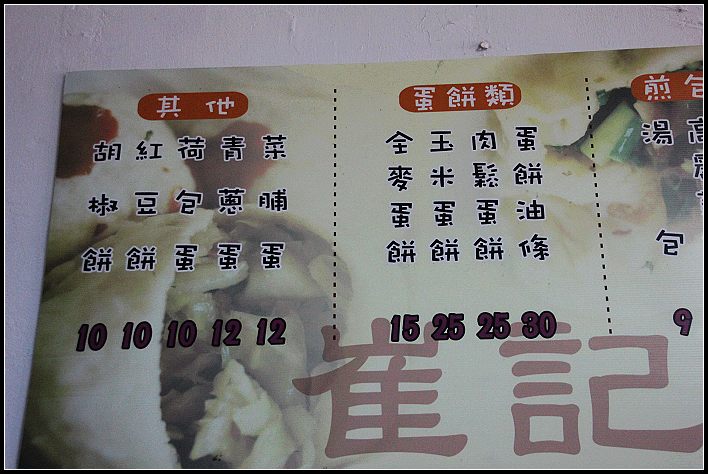 其他
胡椒餅 10
紅豆餅 10
荷包蛋 10
青蔥蛋 12
菜脯蛋 12
蛋餅類
全麥蛋餅 15
玉米蛋餅 25
肉鬆蛋餅 25
蛋餅油條 30
煎包
湯包 9
高
崔記